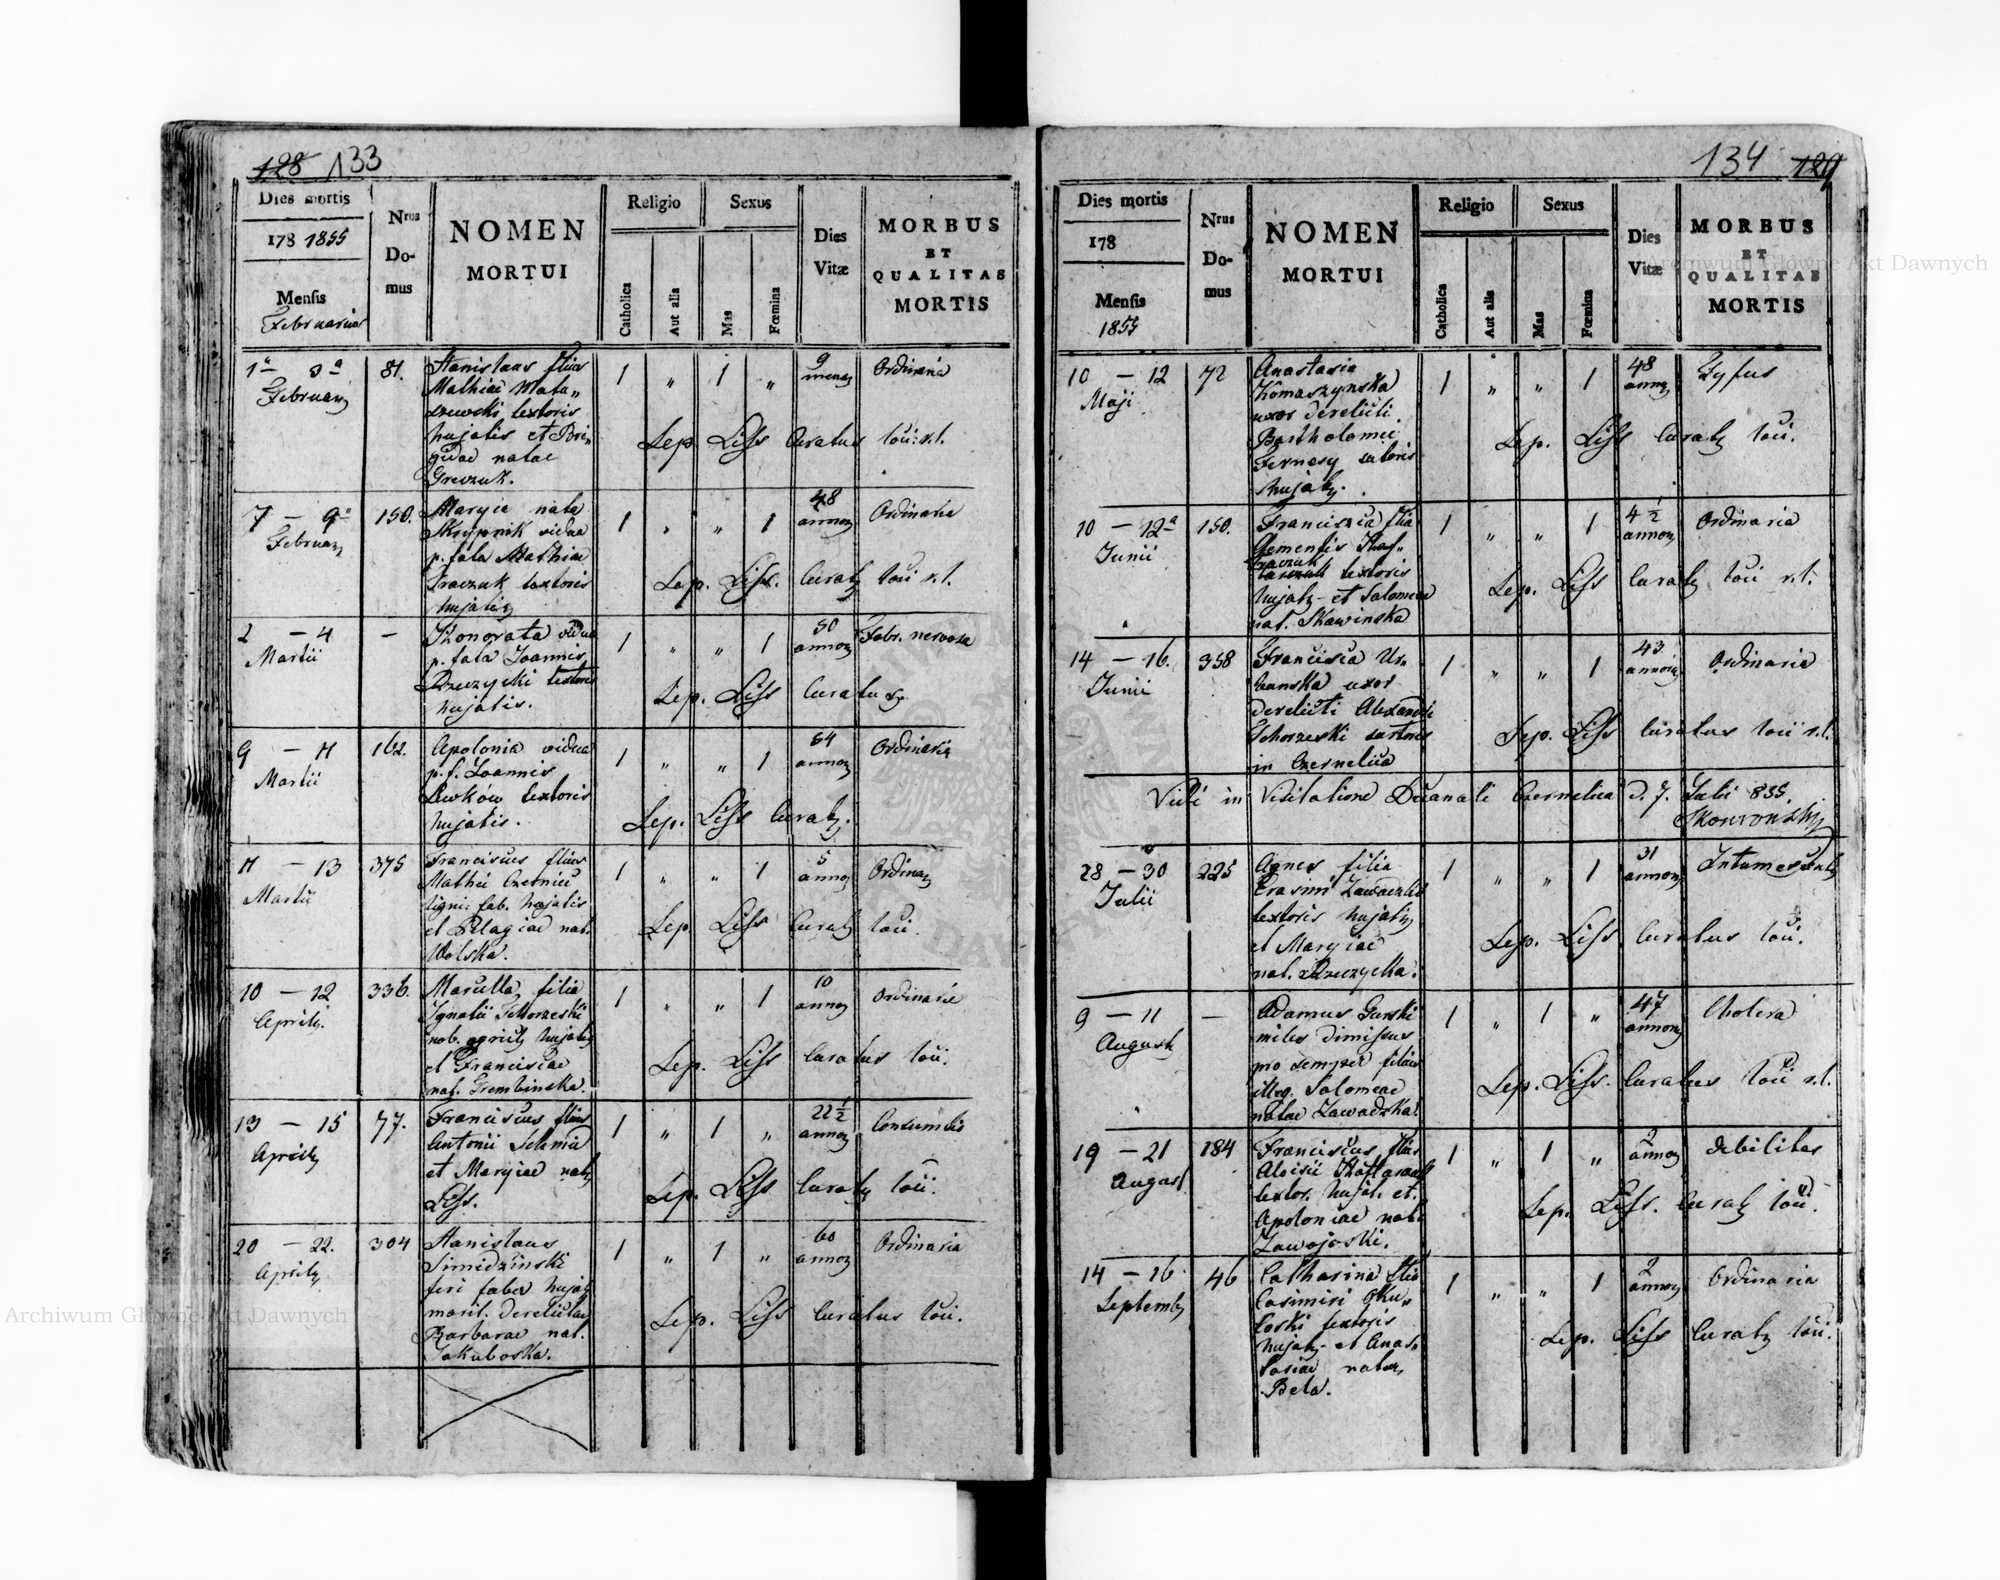 128 133
Dies mortis
178 1855
Mensis
Februarius
Nrus
Do-
mus
NOMEN
MORTUI
Religio
Catholica
Aut alia
Sexus
Mas
Fœmina
Dies
Vitæ
MORBUS
ET
QUALITAS
MORTIS
1a 3a
Februarii
81.
Stanislaus filius
Mathiae Mata„
szewski textoris
hujatis et Bri„
gidae natae
Greczuk.
1 „ 1 „
9
mens
Ordinaria
Sep. Liss Curatus loci r.l.
7 — 9a
Februarii
150.
Maryia nata
Skrypnik vidua
p. fata Mathiae
Kraczuk textoris
hujatis
1 „ „ 1
48
annor
Ordinaria
Sep. Liss. Curat loci r.l.
2 — 4
Martii
—
Honorata vidua
p. fata Joannis
Rzeczycki textoris
hujatis.
1 „ „ 1
50
annor
Febr. nervosa
Sep. Liss Curatus.
9 — 11
Martii
162.
Apolonia vidua
p. f. Joannis
Lewków textoris
hujatis.
1 „ „ 1
64
annor
Ordinaria
Sep. Liss Curat.
11 — 13
Martii
375
Franciscus filius
Mathei Czernici
ligni: fab. hujatis
et Pelagiae nat.
Wolska.
1 „ „ 1
5
annor
Ordinar
Sep. Liss Curat loci.
10 — 12
Aprilis.
336.
Marcella filia
Ignatii Tchorzeski
nob. agric hujatis
et Franciscae
nat. Grembinska.
1 „ „ 1
10
annor
Ordinaria
Sep. Liss Curatus loci.
13 — 15
Aprilis
77.
Franciscus filius
Antonii
et Maryiae nat
Liss.
1 „ 1 „
22 1/2
annor
Consumtio
Sep. Liss Curat loci.
20 — 22.
Aprilis
304
Stanislaus
Simidzinski
feri faber hujat
marit. derelictae
Barbarae nat.
Jakuboska.
1 „ 1 „
60
annor
Ordinaria
Sep. Liss Curatus loci.
134 129
Dies mortis
178
Mensis
1855
Nrus
Do-
mus
NOMEN
MORTUI
Religio
Catholica
Aut alia
Sexus
Mas
Fœmina
Dies
Vitæ
MORBUS
ET
QUALITAS
MORTIS
10 — 12
Maji
72
Anastasia
Komaszynska
uxor derelicti
Bartholomei
Fernesy sutoris
hujat.
1 „ „ 1
48
annor
Tyfus
Sep. Liss Curat loci.
10 — 12a
Junii
150.
Francisca filia
Clementis
Kraczuk
textoris
hujat et Salomeae
nat. Skawinska
1 „ „ 1
4 1/2
annor
Ordinaria
Sep. Liss Curat loci r.l.
14 — 16.
Junii
358
Francisca Ur„
banska uxor
derelicti Alexandri
Tchorzeski sartoris
in Czernelica
1 „ „ 1
43
annor
Ordinaria
Sep. Liss Curatus loci r.l.
Vidi in Visitatione Decanali Czernelica d. 7. Julii 855.
28 — 30
Julii
225
Agnes filia
Erasmi Zawadzki
textoris hujatis
et Maryiae
nat. Rzeczycka.
1 „ „ 1
31
annor
Sep. Liss Curatus loci.
9 — 11
August
—
Adamus Gurski
miles dimissus
pro semper filius
illeg. Salomeae
natae Zawadzka.
1 „ 1 „
47
annor
Cholera
Sep. Liss. Curatus loci r.l.
19 — 21
August
184
Franciscus filius
Aloisii
textor. hujat. et.
Apoloniae nat.
Zawojoski.
1 „ 1 „
2
annor
debilitas
Sep. Liss. Curat loci.
14 — 16
Septemb
46
Catharina filia
Casimiri Gku„
loski textoris
hujat et Anas„
tasiae natae
Bela.
1 „ „ 1
2
annor
Ordinaria
Sep. Liss Curat loci.
Archiwum Główne Akt Dawnych
Archiwum Główne Akt Dawnych